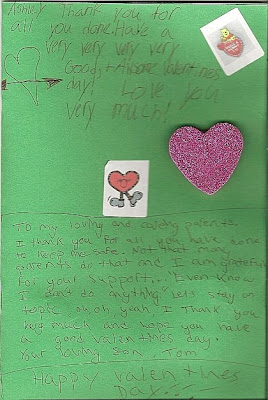 Thank you for
all you done. Have a
very very very very
Good, + Awsome Valentines
day! Love you
very much!
To my loving and caring parents,
I thank you for all you have done
to keep me safe. Not that many
parents do that and I am grateful
for your support... "Even know
I don't do anything." Lets stay on
topic oh, yeah. I thank you
very much and hope you have
a good valentines day.
Your loving Son, Tom
Happy Valentines
Day...